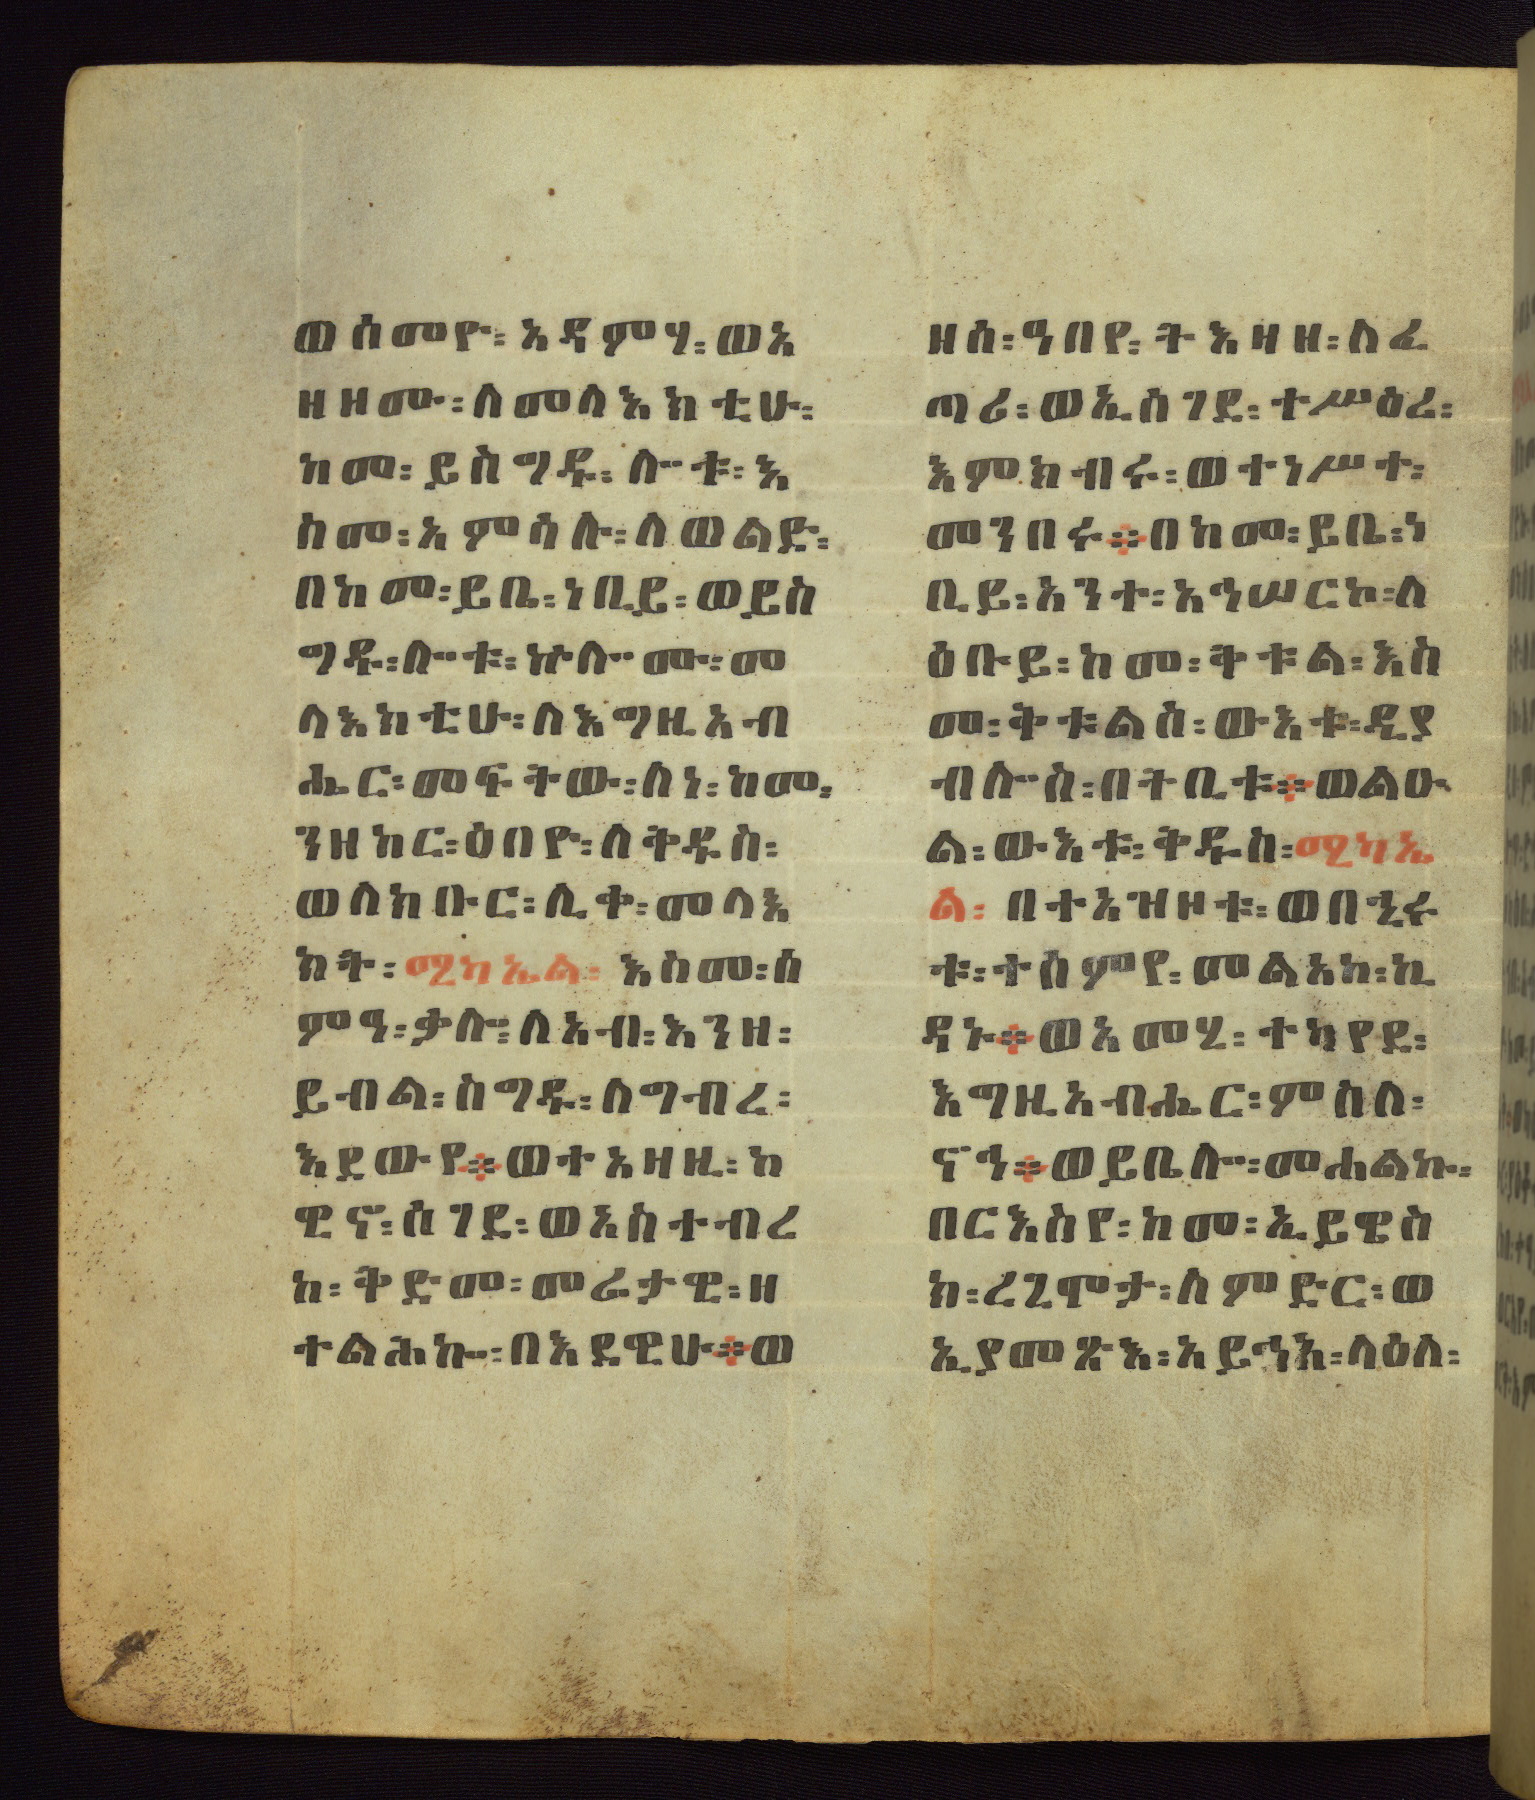 ወሰመዮ፡ አዳምሃ፡ ወአ
ዘዘሙ፡ ለመላእክቲሁ፡
ከመ፡ ይስግዱ፡ ሎቱ፡ እ
ስመ፡ አምሳሉ፡ ለወልድ፡
በከመ፡ ይቤ፡ ነቢይ፡ ወይስ
ግዱ፡ ሎቱ፡ ኵሎሙ፡ መ
ላእክቲሁ፡ ለእግዚአብ
ሔር፡ መፍትው፡ ለነ፡ ከመ፡
ንዘከር፡ ዕበዮ፡ ለቅዱስ፡
ወለክቡር፡ ሊቀ፡ መላእ
ክት፡ ሚካኤል፡ እስመ፡ ሰ
ምዓ፡ ቃሎ፡ ለአብ፡ እንዘ፡
ይብል፡ ስግዱ፡ ለግብረ፡
እደውየ፨ ወተአዘዚ፡ ከ
ዊኖ፡ ሰገደ፡ ወአስተብረ
ከ፡ ቅድመ፡ መሬታዊ፡ ዘ
ተልሕኰ፡ በእደዊሁ፨ ወ
ዘሰ፡ ዓበየ፡ ትእዛዘ፡ ለፈ
ጣሪ፡ ወኢሰገደ፡ ተሥዕረ፡
እምክብሩ፡ ወተነሥተ፡
መንበሩ፨ በከመ፡ ይቤ፡ ነ
ቢይ፡ አንተ፡ አዓሠርኮ፡ ለ
ዕቡይ፡ ከመ፡ ቅቱል፡ እስ
መ፡ ቅቱልሰ፡ ውእቱ፡ ዲያ
ብሎስ፡ በትቢቱ፨ ወልዑ
ል፡ ውእቱ፡ ቅዱስ፡ ሚካኤ
ል፡ በተአዝዞቱ፡ ወበኂሩ
ቱ፡ ተሰምየ፡ መልአከ፡ ኪ
ዳኑ፨ ወአመሂ፡ ተካየደ፡
እግዚአብሔር፡ ምስለ፡
ኖኅ፨ ወይቤሎ፡ መሐልኩ፡
በርእስየ፡ ከመ፡ ኢይዌስ
ክ፡ ረጊሞታ፡ ለምድር፡ ወ
ኢያመጽእ፡ አይኅአ፡ ላዕለ፡